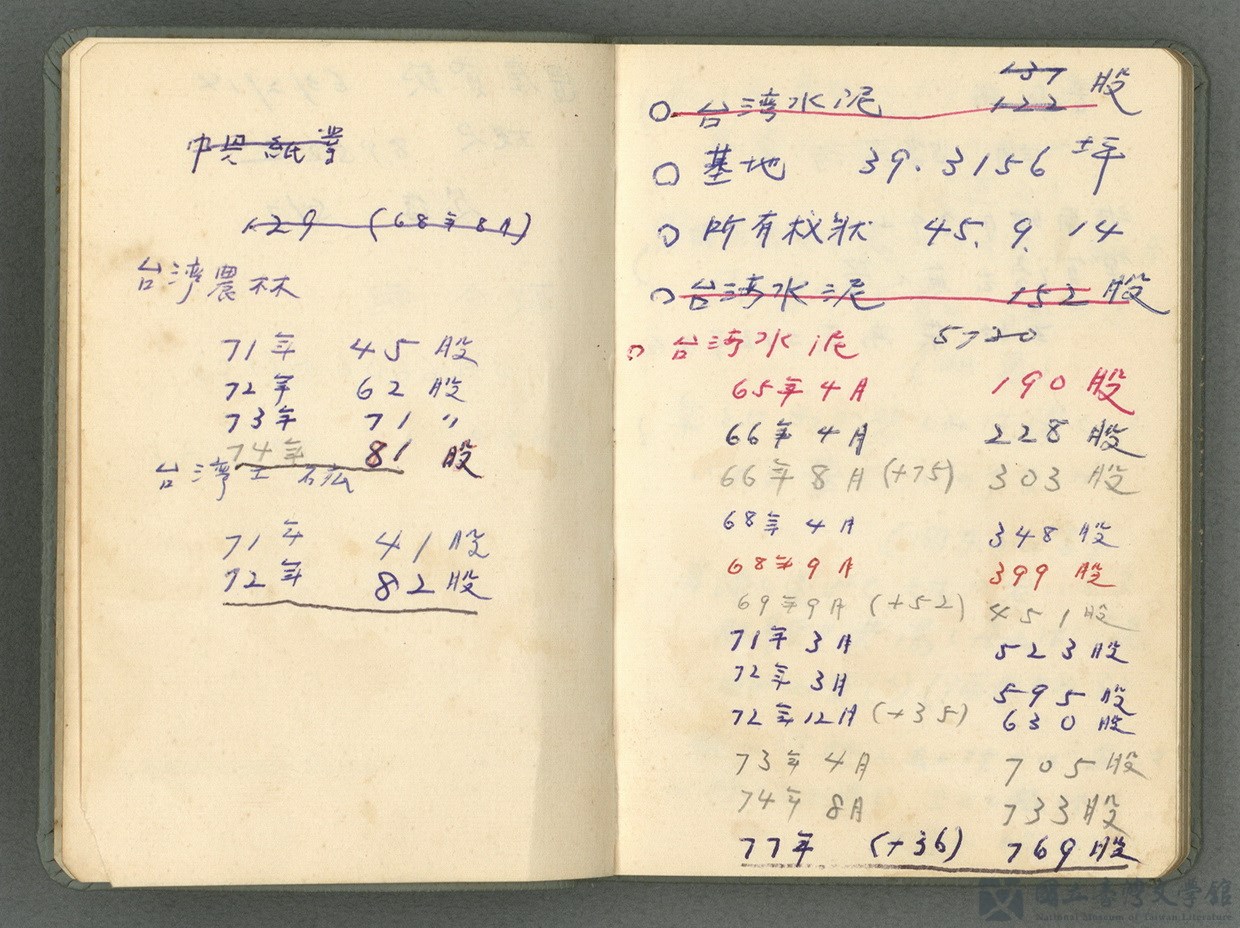 中興紙業
129 (68年8月)
台湾農林
71年 45股
72年 62股
73年 71 〃
74年 81 股
台湾工砿
71年 41股
72年 82股
137
○台湾水泥 122 股
○基地 39.3156坪
○所有权狀 45.9.14
○台湾水泥 152股
○台湾水泥 5720
65年4月 190股
66年4月 228股
66年8月(+75) 303股
68年4月 348股
68年9月 399股
69年9月(+52) 451股
71年3月 523股
72年3月 595股
72年12月(+35) 630股
73年4月 705股
74年8月 733股
77年 (+36) 769股
國立臺灣文學館
National Museum of Taiwan Literature